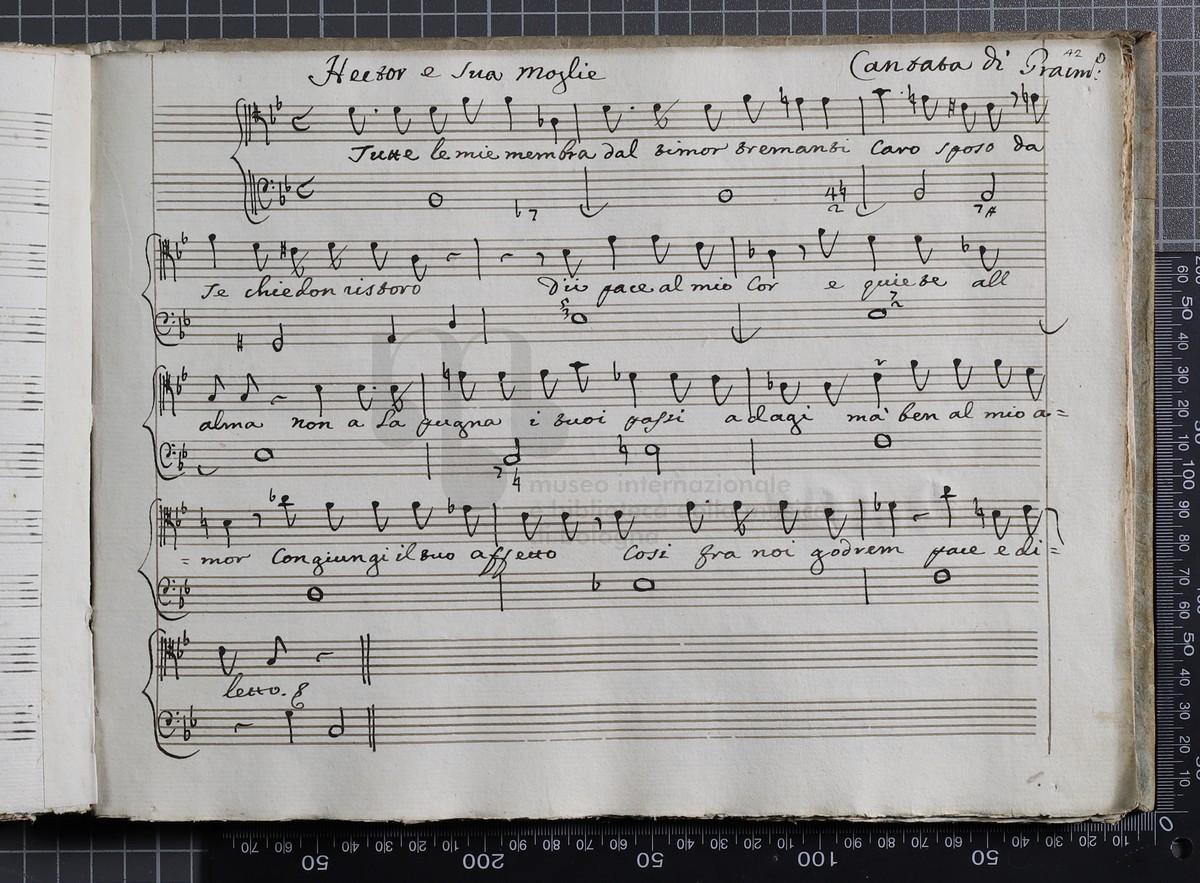 Hector e sua moglie
Cantata di Graun:
42
Tutte le mie membra dal timor tremanti Caro sposo da
Te chiedon ristoro Dii pace al mio Cor e quiete all
alma non a la pugna i tuoi passi adagi mà ben al mio a=
=mor Congiungi il tuo affetto Cosi fra noi godrem pace e di=
letto.
museo internazionale